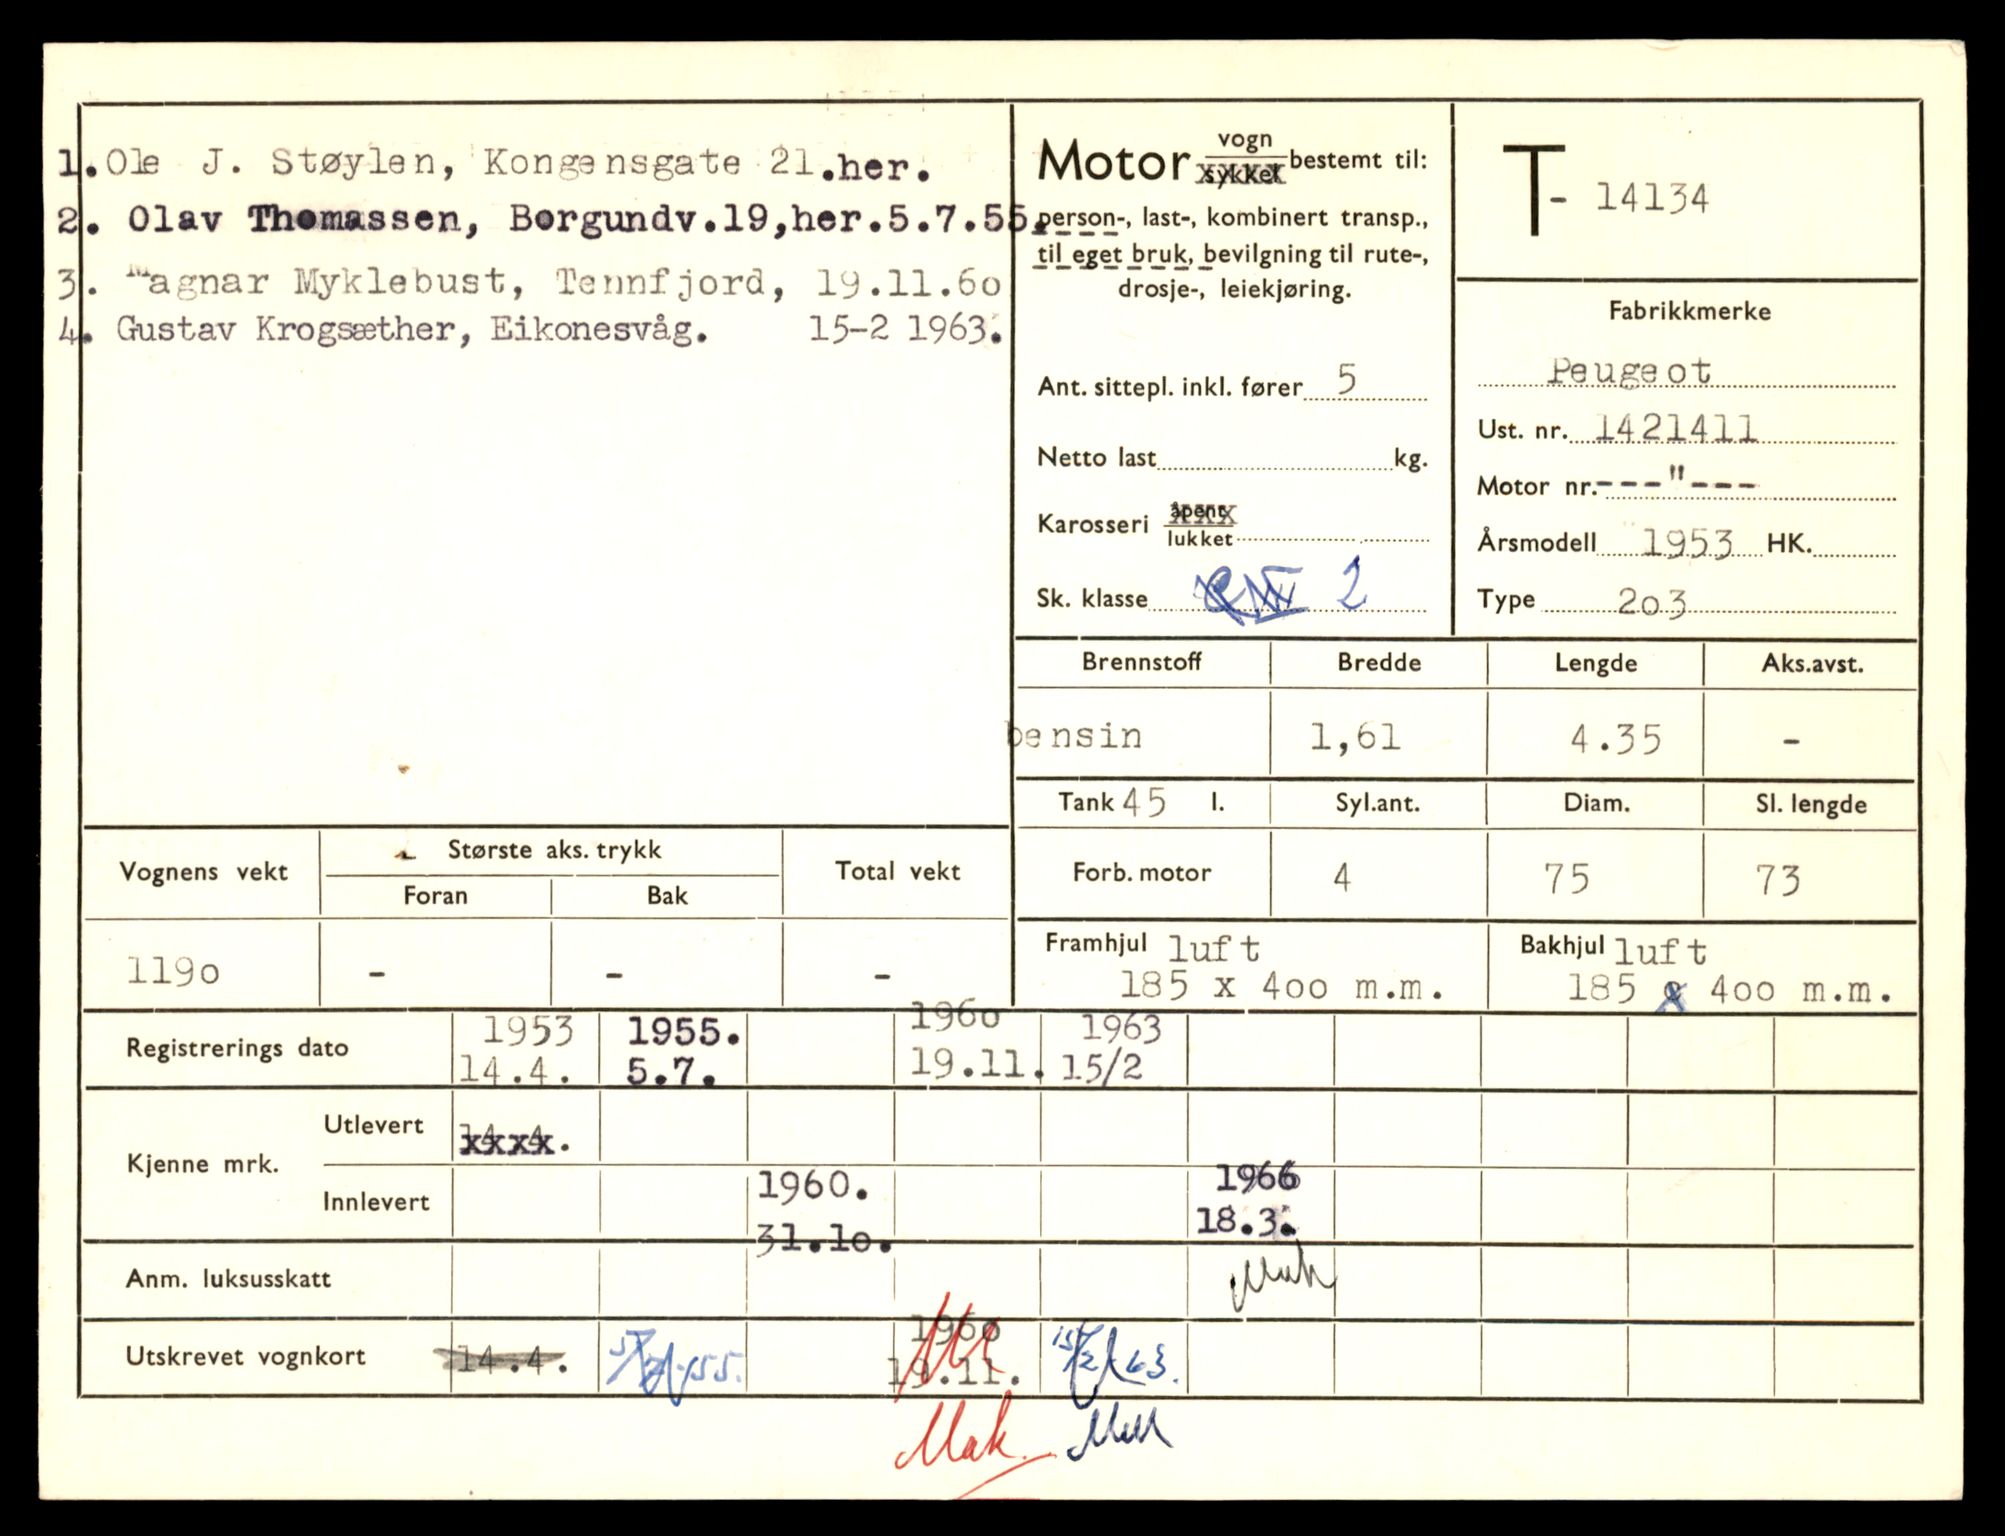 1. Ole J. Støylen, Kongensgate 21.her.
2. Olav Thomassen, Borgundv.19,her.5.7.55.
3. Magnar Myklebust, Tennfjord, 19.11.6o
4. Gustav Krogsæther, Eikonesvåg. 15-2 1963.
Motor vogn sykkel bestemt til:
person-, last-, kombinert transp.,
til eget bruk, bevilgning til rute-,
drosje-, leiekjøring.
Ant. sittepl. inkl. fører 5
Netto last kg.
Karosseri åpent lukket
Sk. klasse 2
T- 14134
Fabrikkmerke
Peugeot
Ust. nr. 1421411
Motor nr. ---"---
Årsmodell 1953 HK.
Type 2o3
Brennstoff Bredde Lengde Aks.avst.
bensin 1,61 4.35 -
Tank 45 l. Syl.ant. Diam. Sl. lengde
Forb. motor 4 75 73
Framhjul luft Bakhjul luft
185 x 4oo m.m. 185 x 4oo m.m.
Vognens vekt Største aks. trykk Total vekt
Foran Bak
119o - - -
Registrerings dato 1953 1955. 196o 1963
14.4. 5.7. 19.11. 15/2
Kjenne mrk. Utlevert 14.4.
Innlevert 1960. 1966
31.1o. 18.3.
Mak
Anm. luksusskatt
Utskrevet vognkort 14.4. 5/7-55. 196o 15/2 63.
19.11.
Mak.